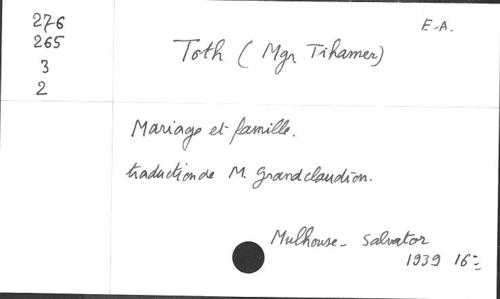 276
265
3
2
E-A.
Toth (Mgr Tihamer)
Mariage et famille.
traduction de M. Grandclaudion.
Mulhouse - Salvator
1939 16=